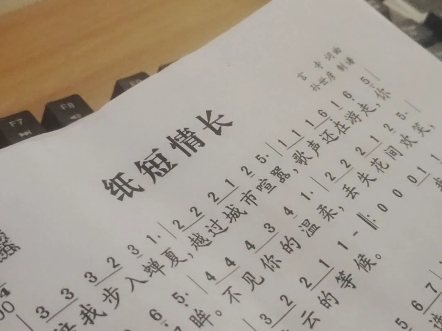 F7
F8
言寺 词曲
孙世彦 制谱
纸短情长
3 3 3 2 3 1· 2 2 2 1 2 5· 1 1 1 6 1 6 5·
我步入蝉夏，越过城市喧嚣，歌声还在游走，你
6 5· 4 4 4 3 4 1· 2 2 2 1 2 5·
眸。不见你的温柔，丢失花间欢笑，
3 2 2 2 1 1 - 0 0 0 1
云的等候。我
5 6 7